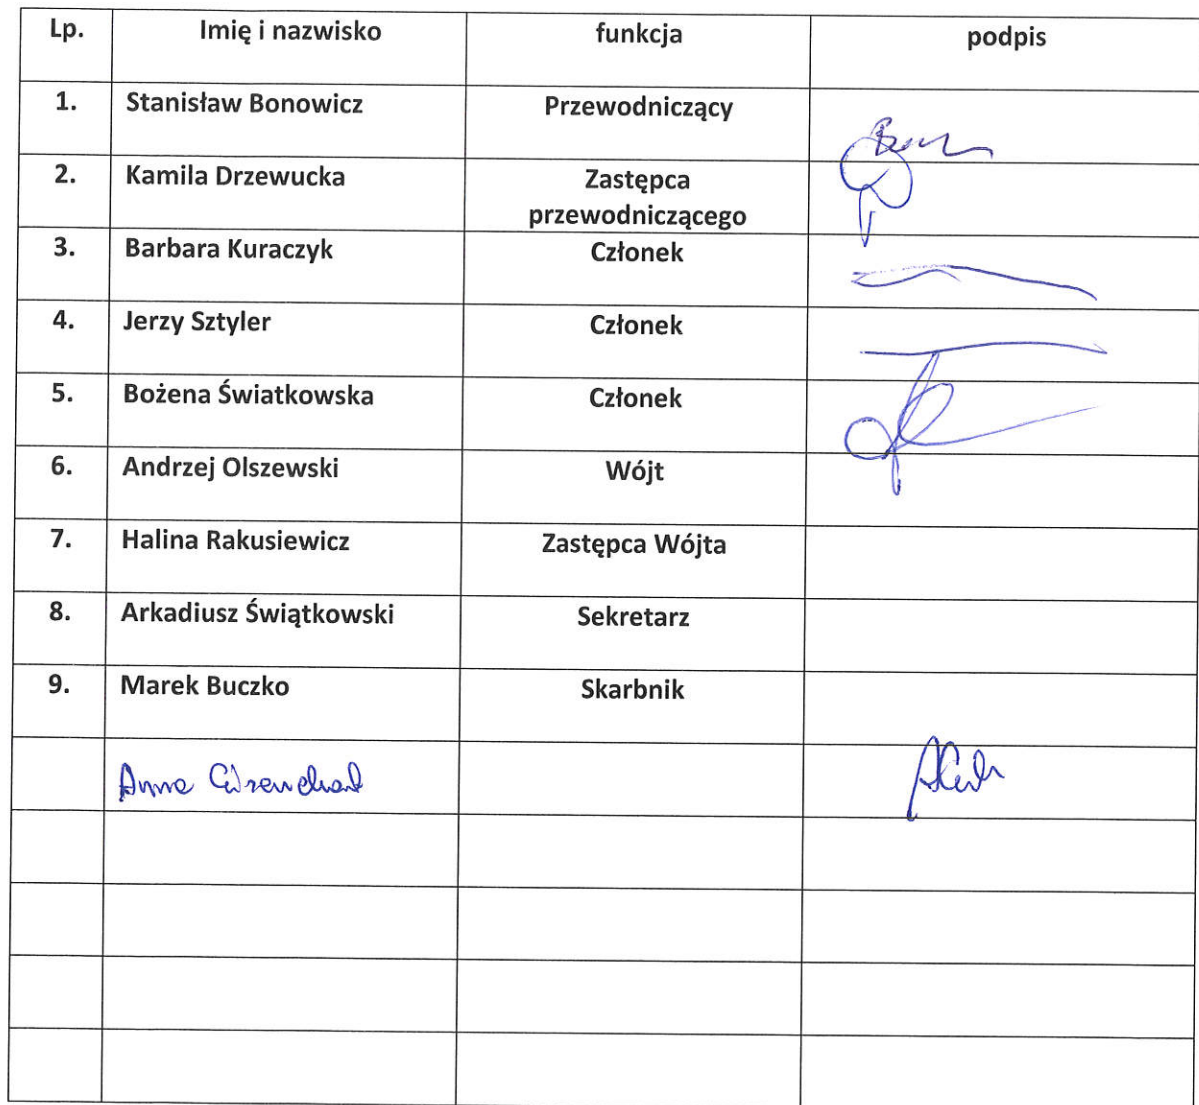 Lp. Imię i nazwisko funkcja podpis
1. Stanisław Bonowicz Przewodniczący
2. Kamila Drzewucka Zastępca
przewodniczącego
3. Barbara Kuraczyk Członek
4. Jerzy Sztyler Członek
5. Bożena Światkowska Członek
6. Andrzej Olszewski Wójt
7. Halina Rakusiewicz Zastępca Wójta
8. Arkadiusz Świątkowski Sekretarz
9. Marek Buczko Skarbnik
Anna